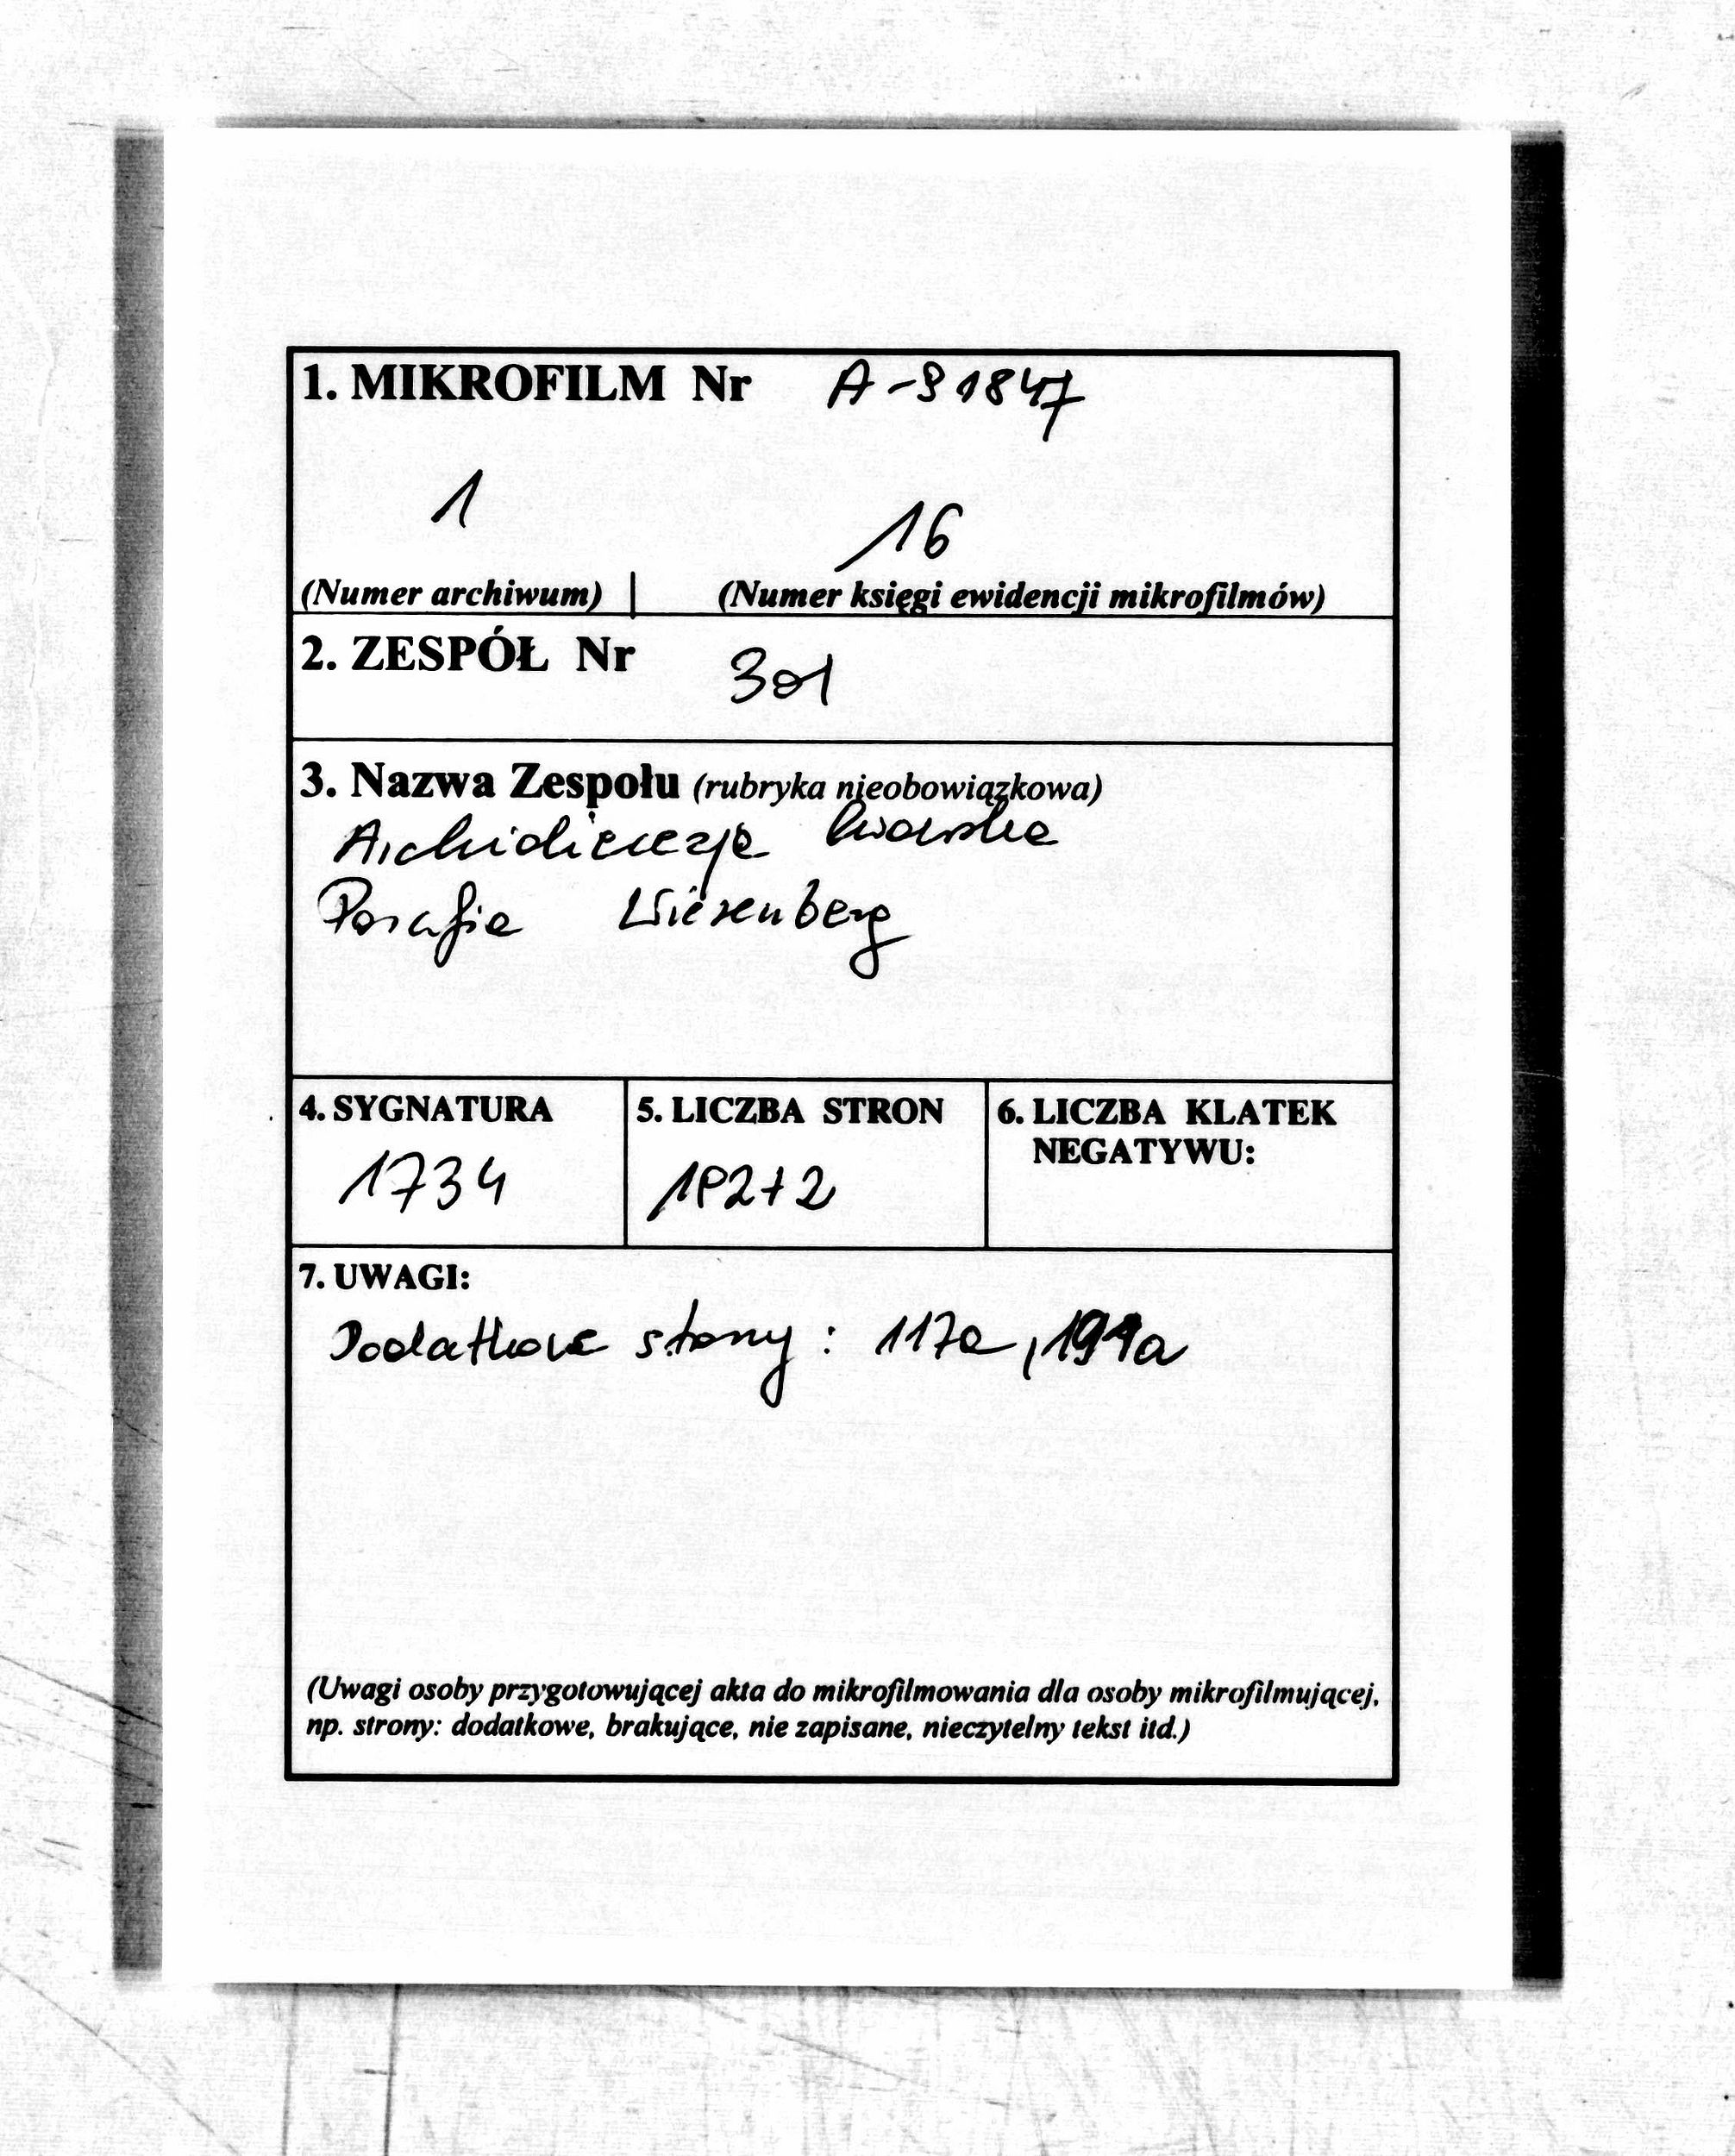 1. MIKROFILM Nr A-81847
1 16
(Numer archiwum) | (Numer księgi ewidencji mikrofilmów)
2. ZESPÓŁ Nr 301
3. Nazwa Zespołu (rubryka nieobowiązkowa)
Archidiecezja Lwowska
Parafia Wiesenberg
4. SYGNATURA 5. LICZBA STRON 6. LICZBA KLATEK
NEGATYWU:
1734
7. UWAGI:
Dodatkowe strony: 117a,
(Uwagi osoby przygotowującej akta do mikrofilmowania dla osoby mikrofilmującej,
np. strony: dodatkowe, brakujące, nie zapisane, nieczytelny tekst itd.)